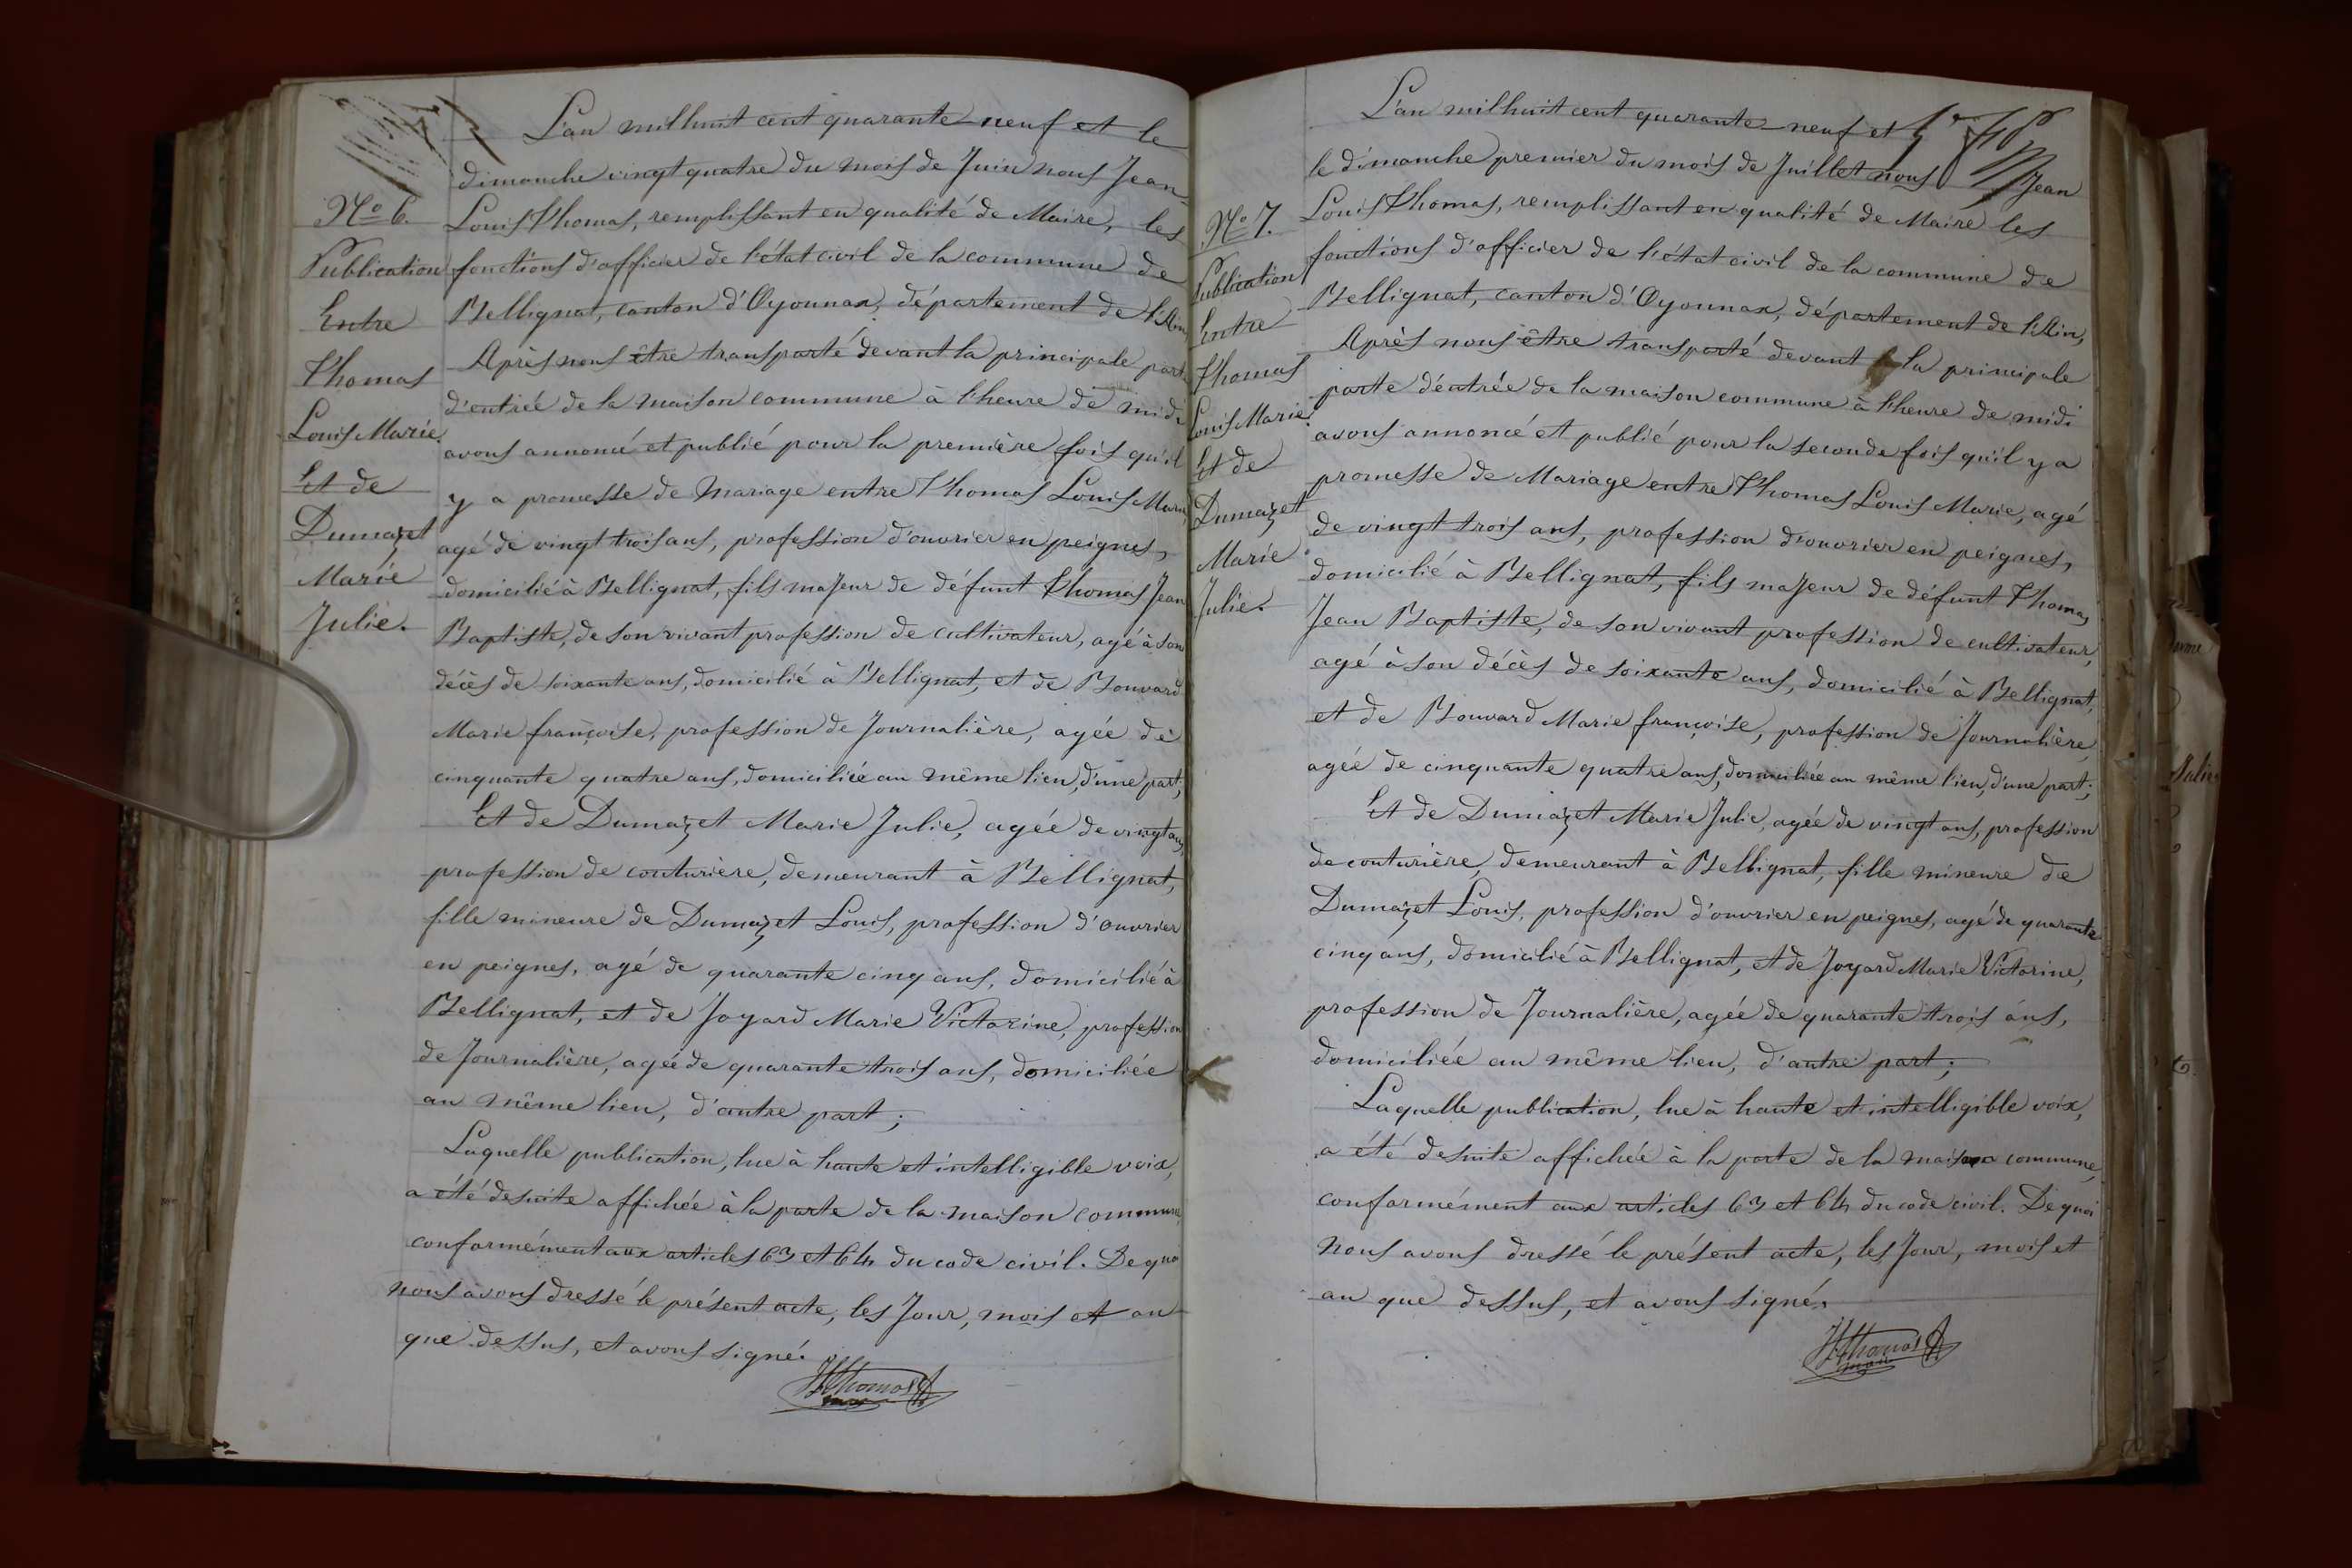 L'an mil huit cent quarante-neuf et le
dimanche vingt quatre du mois de Juin nous Jean
Louis Thomas, remplissant en qualité de Maire, les
fonctions d'officier de l'état civil de la commune de
Bellignat, canton d'Oyonnax, département de l'Ain
Après nous être transporté devant la principale port
d'entrée de la maison commune à l'heure de midi
avons annoncé et publié pour la première fois qu'il
y a promesse de Mariage entre Thomas Louis Marie
agé de vingt trois ans, profession d'ouvrier en peignes,
domicilié à Bellignat, fils majeur de défunt Thomas Jean
Baptiste, de son vivant profession de cultivateur, agé à son
décès de soixante ans, domicilié à Bellignat, et de Bouvard
Marie françoise, profession de Journalière, agée de
cinquante quatre ans, domiciliée au même lieu, d'une part;
Et de Dumazet Marie Julie, agée de vingt ans,
profession de couturière, demeurant à Bellignat,
fille mineure de Dumazet Louis, profession d'ouvrier
en peignes, agé de quarante cinq ans, domicilié à
Bellignat, et de Joyard Marie Victorine, profession
de Journalière, agée de quarante trois ans, domiciliée
au même lieu, d'autre part;
Laquelle publication, lue à haute et intelligible voix,
a été desuite affichée à la porte de la maison commune,
conformément aux articles 63 et 64 du code civil. De quoi
nous avons dressé le présent acte, les Jour, mois et an
que dessus, et avons signé.
JLThomas
maire
No 6.
Publication
Entre
Thomas
Louis Marie.
Et de
Dumazet
Marie
Julie.
L'an mil huit cent quarante-neuf et
le dimanche premier du mois de Juillet nous Jean
Louis Thomas, remplissant en qualité de Maire les
fonctions d'officier de l'état civil de la commune de
Bellignat, canton d'Oyonnax, département de l'Ain,
Après nous être transporté devant la principale
porte d'entrée de la maison commune à l'heure de midi
avons annoncé et publié pour la seconde fois qu'il y a
promesse de Mariage entre Thomas Louis Marie, agé
de vingt trois ans, profession d'ouvrier en peignes,
domicilié à Bellignat, fils majeur de défunt Thomas
Jean Baptiste, de son vivant profession de cultivateur,
agé à son décès de soixante ans, domicilié à Bellignat,
et de Bouvard Marie françoise, profession de Journalière,
agée de cinquante quatre ans, domiciliée au même lieu, d'une part;
Et de Dumazet Marie Julie, agée de vingt ans, profession
de couturière, demeurant à Bellignat, fille mineure de
Dumazet Louis, profession d'ouvrier en peignes, agé de quarante
cinq ans, domicilié à Bellignat, et de Joyard Marie Victorine,
profession de Journalière, agée de quarante trois ans,
domiciliée au même lieu, d'autre part;
Laquelle publication, lue à haute et intelligible voix,
a été desuite affichée à la porte de la maison commune,
conformément aux articles 63 et 64 du code civil. De quoi
nous avons dressé le présent acte, les Jour, mois et
an que dessus, et avons signé.
JLThomas
maire
No 7.
Publication
Entre
Thomas
Louis Marie.
Et de
Dumazet
Marie
Julie.